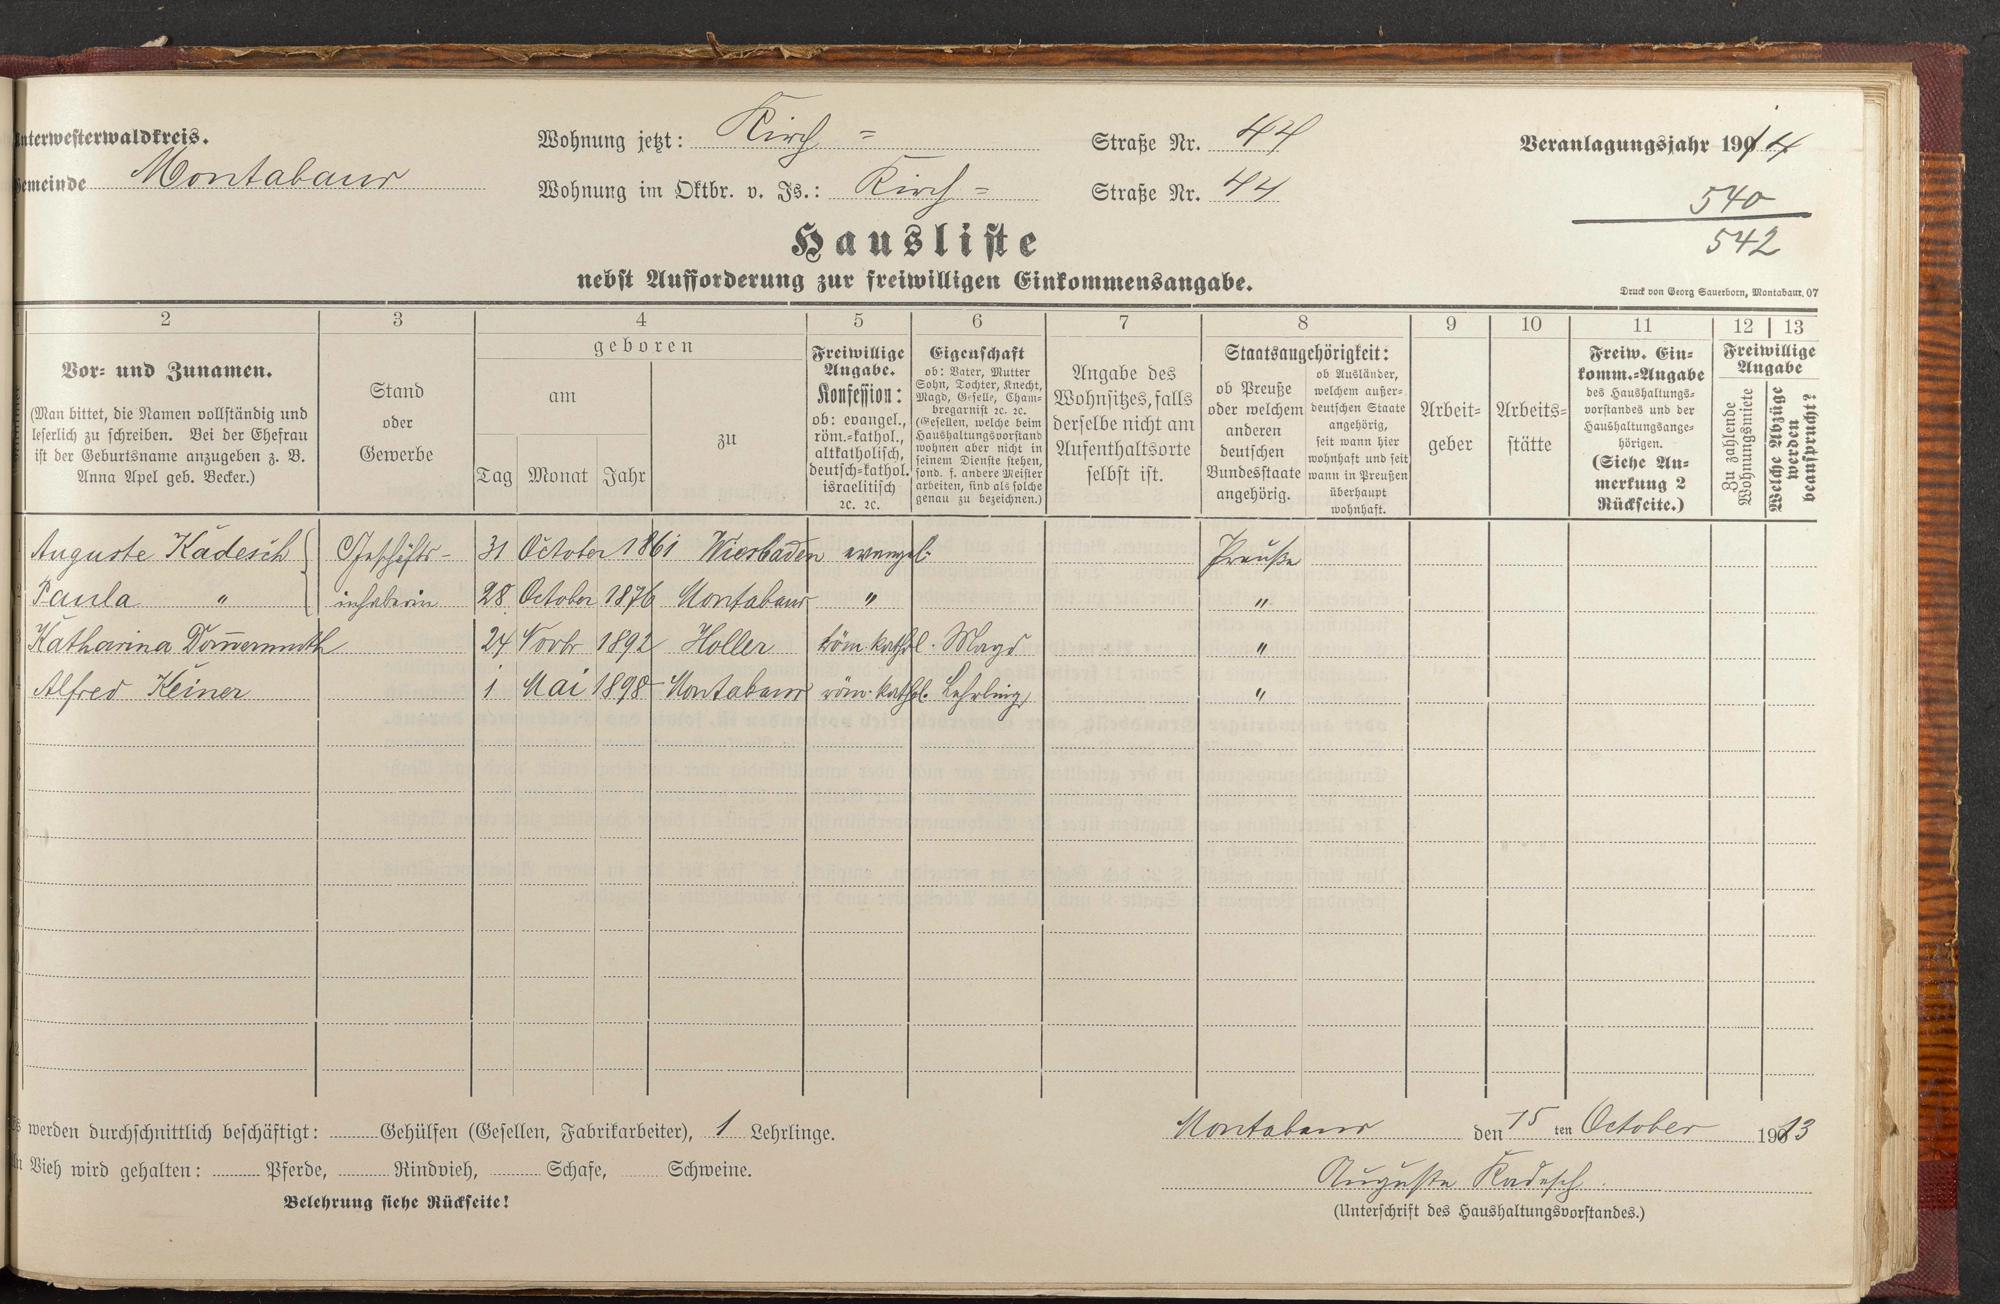 Unterwesterwaldkreis.
Gemeinde Montabaur
Wohnung jetzt: Kirch = Straße Nr. 44
Wohnung im Oktbr. v. Js.: Kirch = Straße Nr. 44
Veranlagungsjahr 1914
540
542
Hausliste
nebst Aufforderung zur freiwilligen Einkommensangabe.
Druck von Georg Sauerborn, Montabaur. 07
2 3 4 5 6 7 8 9 10 11 12 13
Vor- und Zunamen.
(Man bittet, die Namen vollständig und
leserlich zu schreiben. Bei der Ehefrau
ist der Geburtsname anzugeben z. B.
Anna Apel geb. Becker.)
Stand
oder
Gewerbe
geboren
am
Tag Monat Jahr
zu
Freiwillige
Angabe.
Konfession:
ob: evangel.,
röm.-kathol.,
altkatholisch,
deutsch-kathol.
israelitisch
ꝛc. ꝛc.
Eigenschaft
ob: Vater, Mutter
Sohn, Tochter, Knecht,
Magd, Geselle, Cham-
bregarnist ꝛc. ꝛc.
(Gesellen, welche beim
Haushaltungsvorstand
wohnen aber nicht in
seinem Dienste stehen,
sond. f. andere Meister
arbeiten, sind als solche
genau zu bezeichnen.)
Angabe des
Wohnsitzes, falls
derselbe nicht am
Aufenthaltsorte
selbst ist.
Staatsangehörigkeit:
ob Preuße
oder welchem
anderen
deutschen
Bundesstaate
angehörig.
ob Ausländer,
welchem außer-
deutschen Staate
angehörig,
seit wann hier
wohnhaft und seit
wann in Preußen
überhaupt
wohnhaft.
Arbeit-
geber
Arbeits-
stätte
Freiw. Ein-
komm.-Angabe
des Haushaltungs-
vorstandes und der
Haushaltungsange-
hörigen.
(Siehe An-
merkung 2
Rückseite.)
Freiwillige
Angabe
Zu zahlende
Wohnungsmiete
Welche Abzüge
werden
beansprucht?
Auguste Kadesch Geschäfts- 31 October 1861 Wiesbaden evangel: Preuße
Paula " inhaberin 28 October 1876 Montabaur " "
Katharina Dom̄ermuth 24 Novbr 1892 Holler röm. kathol. Magd "
Alfred Keiner 1 Mai 1898 Montabaur röm. kathol. Lehrling "
Es werden durchschnittlich beschäftigt: Gehülfen (Gesellen, Fabrikarbeiter), 1 Lehrlinge.
An Vieh wird gehalten: Pferde, Rindvieh, Schafe, Schweine.
Belehrung siehe Rückseite!
Montabaur den 15 ten October 1913
Auguste Kadesch.
(Unterschrift des Haushaltungsvorstandes.)